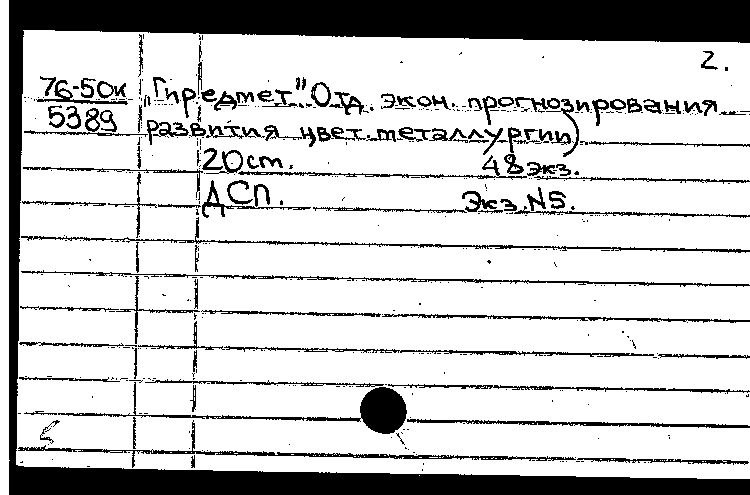 2.
76-50к „Гиредмет" Отд. экон. прогнозирования
5389 развития цвет. металлургии)
20 ст. 48 экз.
ДСП. Экз. N5.